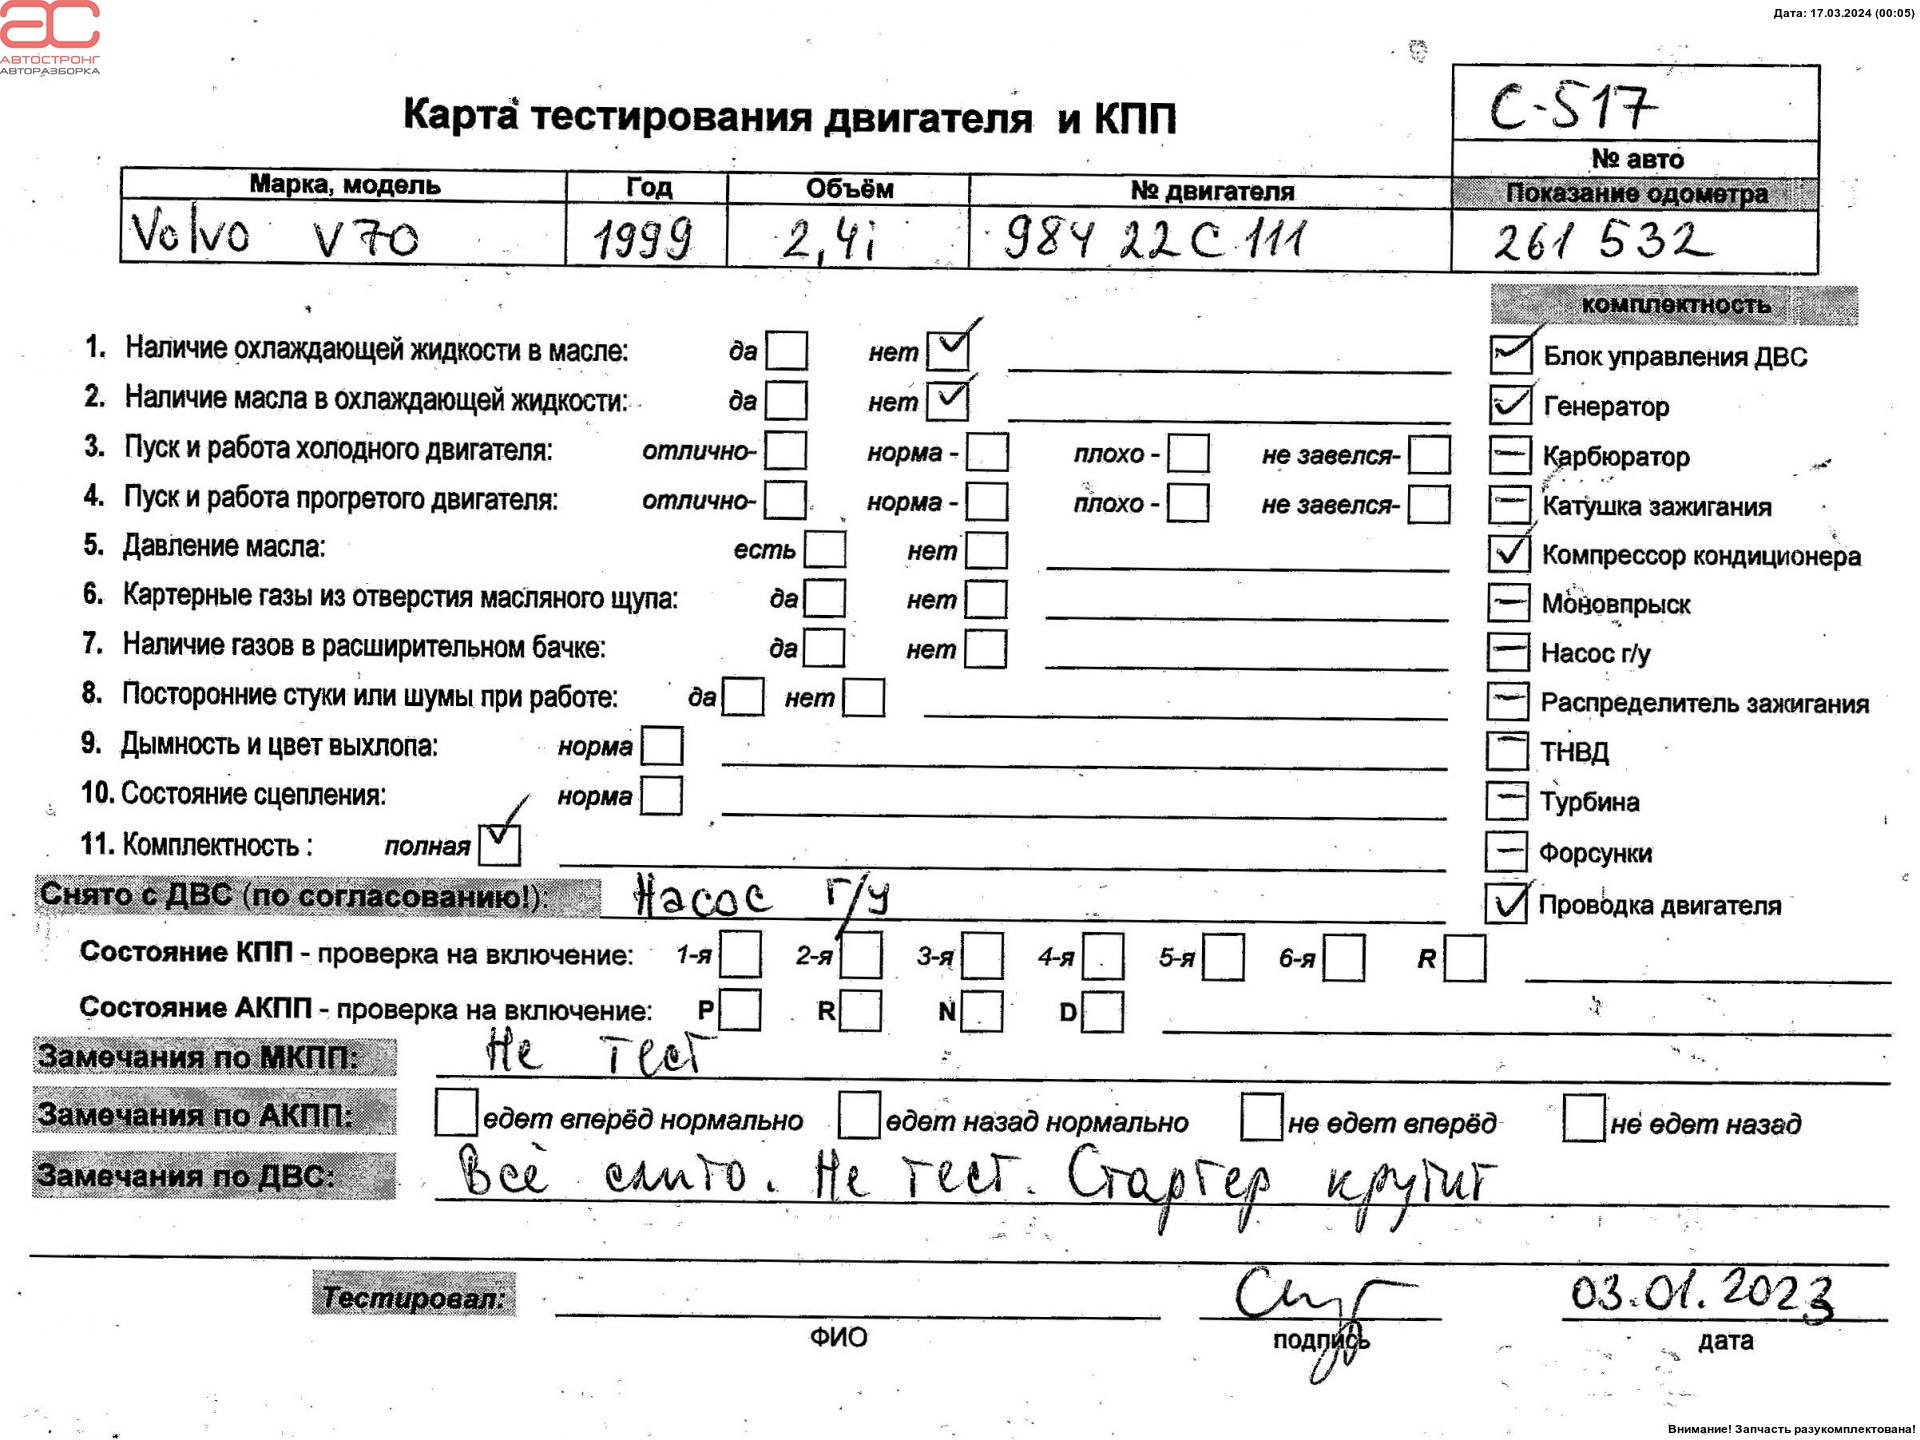 Дата: 17.03.2024 (00:05)
АВТОСТРОНГ
АВТОРАЗБОРКА
Карта тестирования двигателя и КПП
С-517
№ авто
Марка, модель Год Объём № двигателя Показание одометра
Volvo V70 1999 2,4i 984 22 C 111 261 532
комплектность
1. Наличие охлаждающей жидкости в масле: да нет
Блок управления ДВС
2. Наличие масла в охлаждающей жидкости: да нет
Генератор
3. Пуск и работа холодного двигателя: отлично- норма - плохо - не завелся-
Карбюратор
4. Пуск и работа прогретого двигателя: отлично- норма - плохо - не завелся-
Катушка зажигания
5. Давление масла: есть нет
Компрессор кондиционера
6. Картерные газы из отверстия масляного щупа: да нет
Моновпрыск
7. Наличие газов в расширительном бачке: да нет
Насос г/у
8. Посторонние стуки или шумы при работе: да нет
Распределитель зажигания
9. Дымность и цвет выхлопа: норма
ТНВД
10. Состояние сцепления: норма
Турбина
11. Комплектность : полная
Форсунки
Снято с ДВС (по согласованию!): Насос г/у
Проводка двигателя
Состояние КПП - проверка на включение: 1-я 2-я 3-я 4-я 5-я 6-я R
Состояние АКПП - проверка на включение: P R N D
Замечания по МКПП: Не тест
Замечания по АКПП: едет вперёд нормально едет назад нормально не едет вперёд не едет назад
Замечания по ДВС: Всё слито. Не тест. Стартер крутит
Тестировал: 03.01.2023
ФИО подпись дата
Внимание! Запчасть разукомплектована!